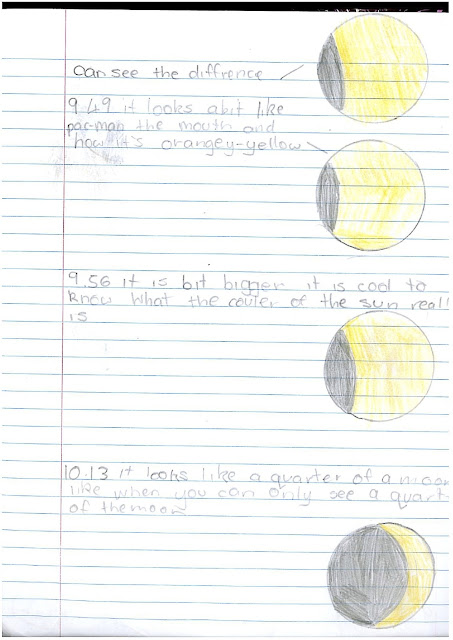 can see the diffrence
9.49 it looks abit like
pac-man the mouth and
how it's orangey-yellow
9.56 it is bit bigger it is cool to
know what the couler of the sun reall
is
10.13 it looks like a quarter of a moon
like when you can only see a quart
of the moon